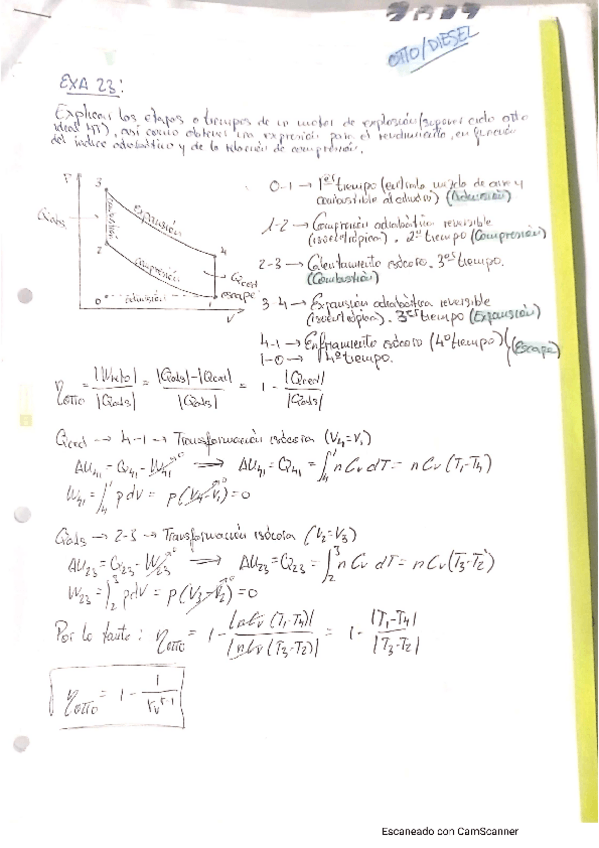 OTTO/DIESEL
EXA 23:
Explicar las etapas o tiempos de un motor de explosión (suponer ciclo otto
ideal 4T), así como obtener una expresión para el rendimiento, en función
del índice adiabático y de la relación de compresión.
P
3
Qabs
combustión
Expansión
2
4
compresión
Qced
escape
0
admisión
1
V
0-1 → 1er tiempo (entrada mezcla de aire y
combustible al cilindro) (Admisión)
1-2 → Compresión adiabática reversible
(isoentrópica). 2º tiempo (Compresión)
2-3 → Calentamiento isócoro. 3er tiempo.
(Combustión)
3-4 → Expansión adiabática reversible
(isoentrópica). 3er tiempo (Expansión)
4-1 → Enfriamiento isócoro (4º tiempo) (Escape)
1-0 → 4º tiempo.
ηOTTO = |Wneto|/|Qabs| = |Qabs|-|Qced|/|Qabs| = 1 - |Qced|/|Qabs|
Qced → 4-1 → Transformación isócora (V4=V1)
ΔU41 = Q41 - W41 →0 ⟹ ΔU41 = Q41 = ∫4 1 n Cv dT = n Cv (T1-T4)
W41 = ∫4 1 p dV = p (V4-V1) →0 = 0
Qabs → 2-3 → Transformación isócora (V2=V3)
ΔU23 = Q23 - W23 →0 ⟹ ΔU23 = Q23 = ∫2 3 n Cv dT = n Cv (T3-T2)
W23 = ∫2 3 p dV = p (V3-V2) →0 = 0
Por lo tanto: ηOTTO = 1 - |n Cv (T1-T4)|/|n Cv (T3-T2)| = 1 - |T1-T4|/|T3-T2|
ηOTTO = 1 - 1/rv^γ-1
Escaneado con CamScanner